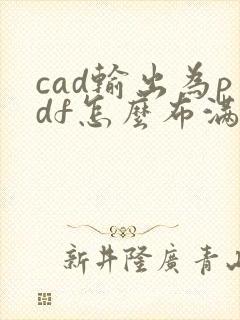 cad輸出為p
df怎麼布滿
新井隆廣青山